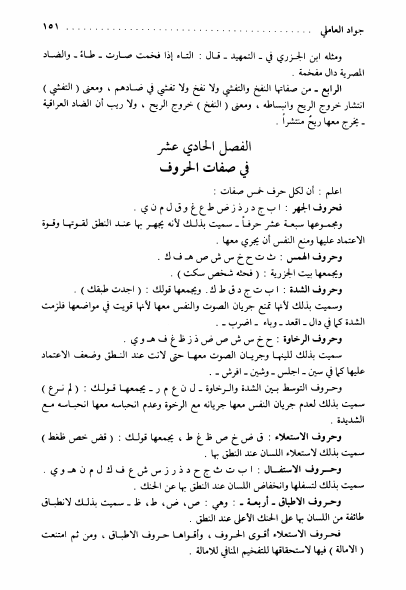 جواد العاملي ................................................ ١٥١
ومثله ابن الجزري في ـ التمهيد ـ قال : التاء إذا فخمت صارت ـ طاءً ـ والضاد
المصرية دال مفخمة .
الرابع ـ من صفاتها النفخ والتفشي ولا نفخ ولا تفشي في ضادهم ، ومعنى ( التفشي )
انتشار خروج الريح وانبساطه ، ومعنى ( النفخ ) خروج الريح ، ولا ريب أن الضاد العراقية
ـ يخرج معها ريحٌ منتشراً .
الفصل الحادي عشر
في صفات الحروف
اعلم : أن لكل حرف خمس صفات :
فحروف الجهر : ا ب ج د ر ذ ز ض ط ع غ و ق ل م ن ي .
ومجموعها سبعة عشر حرفاً ـ سميت بذلك لأنه يجهر بها عند النطق لقوتها وقوة
الاعتماد عليها ومنع النفس أن يجري معها .
وحروف الهمس : ث ت ح خ س ش ص هـ ف ك .
ويجمعها بيت الجزرية : ( فحثه شخص سكت ) .
وحروف الشدة : ا ب ت ج د ق ط ك . ويجمعها قولك : ( اجدت طبقك ) .
وسميت بذلك لأنها تمنع جريان الصوت والنفس معها لأنها قويت في مواضعها فلزمت
الشدة كما في دال ـ اقعد ـ وباء ـ اضرب ـ .
وحروف الرخاوة : ح خ س ش ص ض ذ ز ظ غ ف هـ و ي .
سميت بذلك للينها وجريان الصوت معها حتى لانت عند النطق وضعف الاعتماد
عليها كما في سين ـ اجلس ـ وشين ـ افرش ـ .
وحروف التوسط بين الشدة والرخاوة ـ ل ن ع م ر ـ يجمعها قولك : ( لم نرع )
سميت بذلك لعدم جريان النفس معها جريانه مع الرخوة وعدم انحباسه معها انحباسه مع
الشديدة .
وحروف الاستعلاء : ق ض خ ص ظ غ ط ، يجمعها قولك : ( قض خص ظغط )
سميت بذلك لاستعلاء اللسان عند النطق بها .
وحروف الاستفال : ا ب ت ث ج ح د ذ ر ز س ش ع ف ك ل م ن هـ و ي .
سميت بذلك لتسفلها وانخفاض اللسان عند النطق بها عن الحنك .
وحروف الاطباق ـ أربعة ـ : وهي : ص، ض، ط، ظ ـ سميت بذلك لانطباق
طائفة من اللسان بها على الحنك الأعلى عند النطق .
فحروف الاستعلاء أقوى الحروف ، وأقواها حروف الاطباق ، ومن ثم امتنعت
( الامالة ) فيها لاستحقاقها للتفخيم المنافي للامالة .